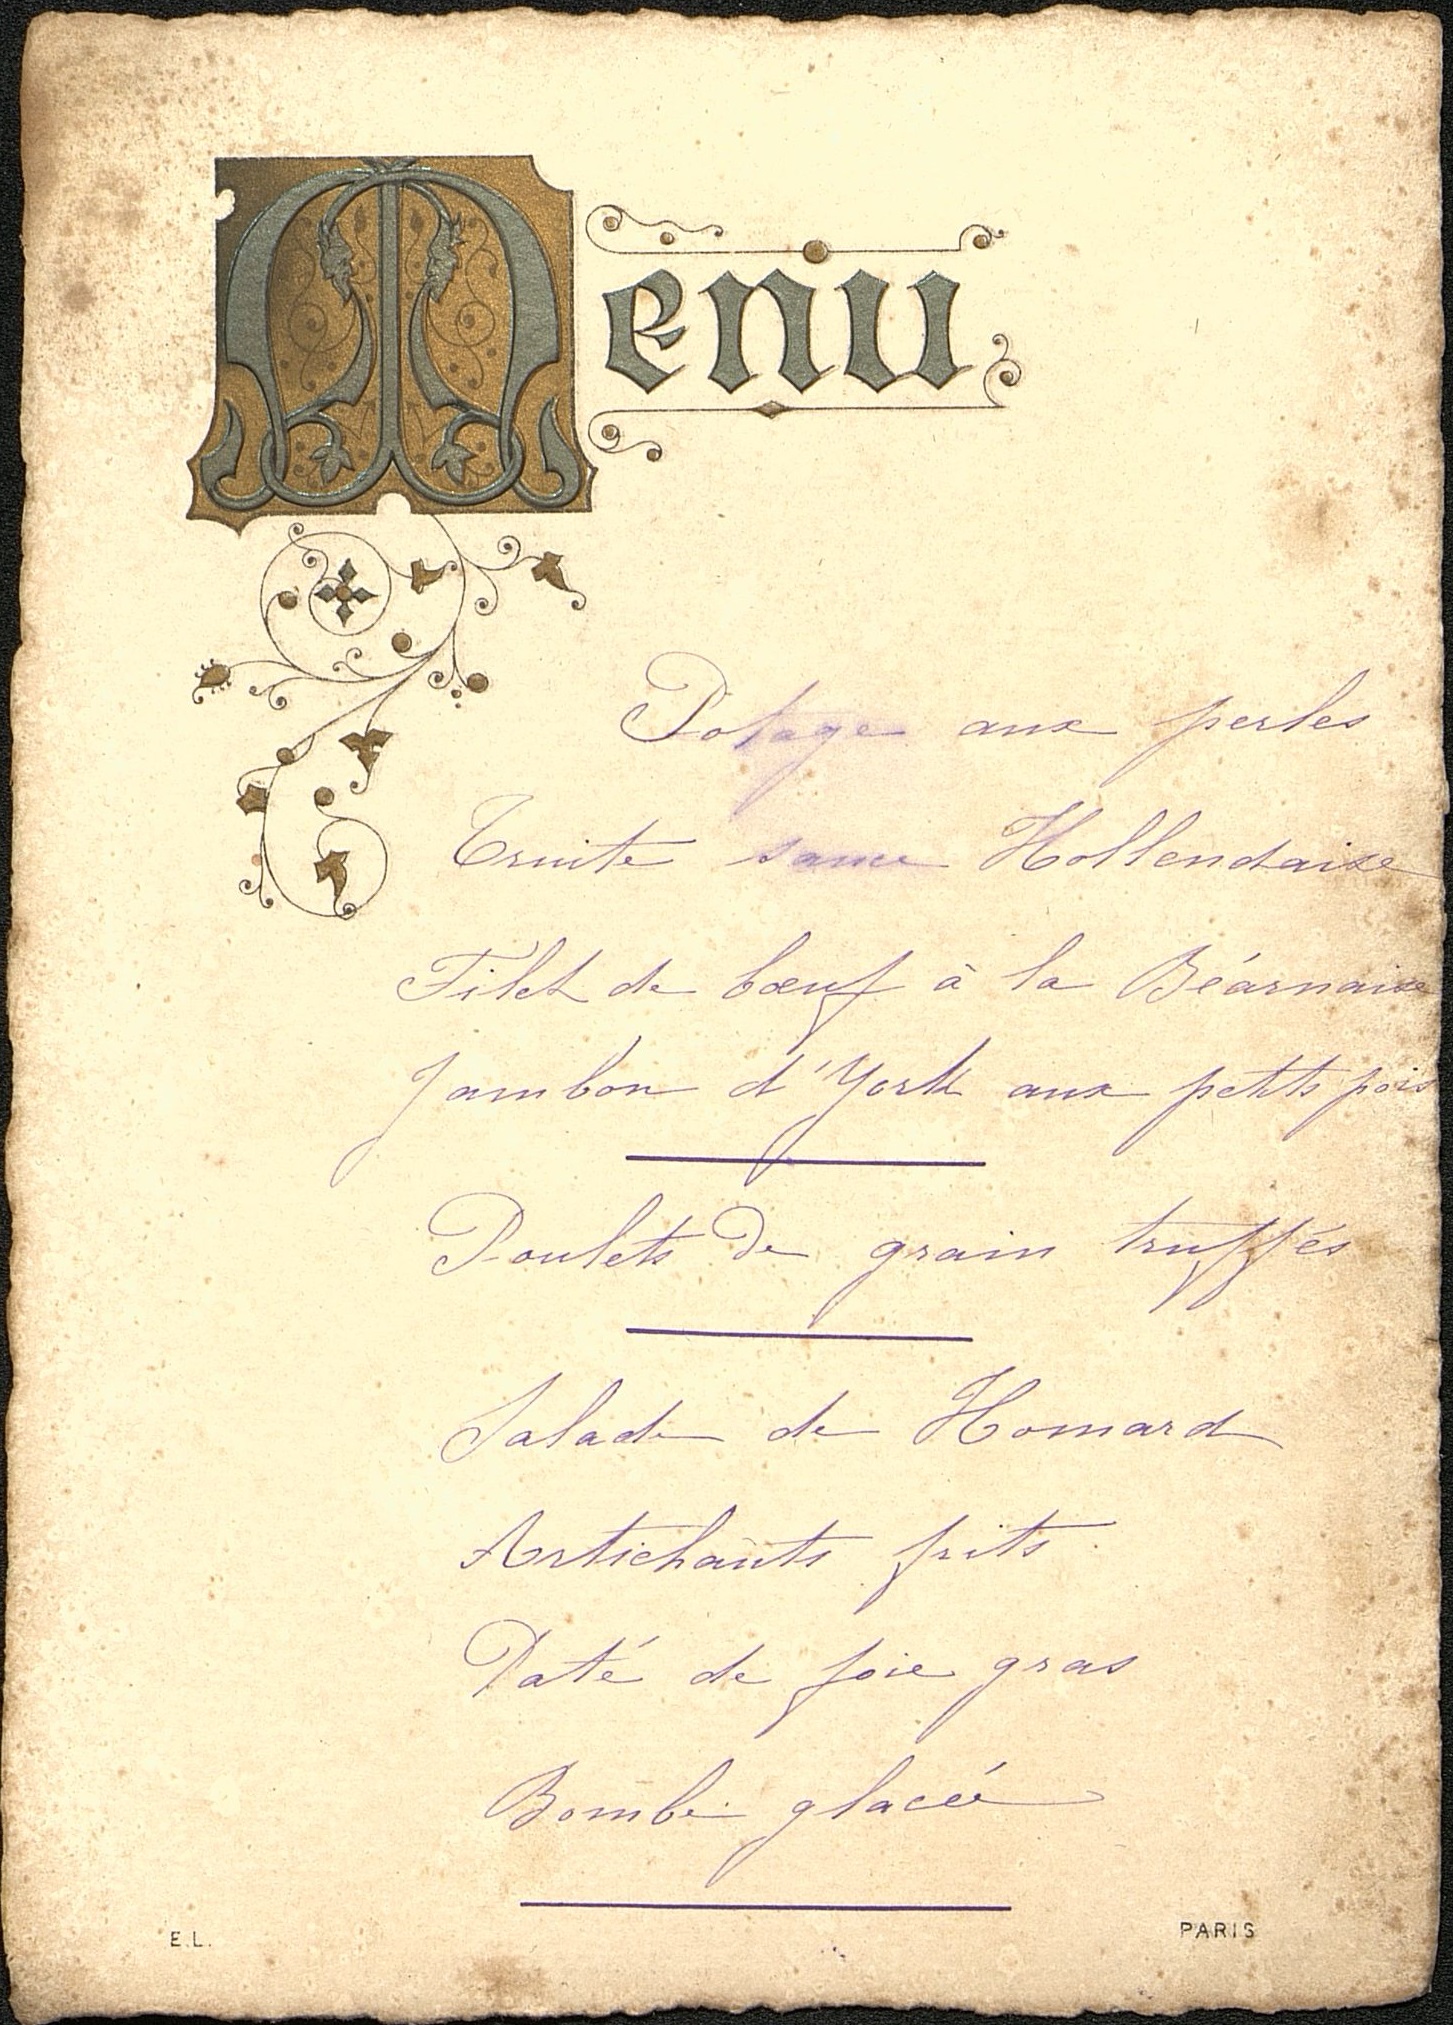 Menu
Potage aux perles
Truite sauce Hollendaise
Filet de bœuf à la Béarnaise
Jambon d'York aux petits pois
Poulets de grain truffés
Salade de Homard
Artichauts frits
Paté de foie gras
Bombe glacée
E.L.
PARIS